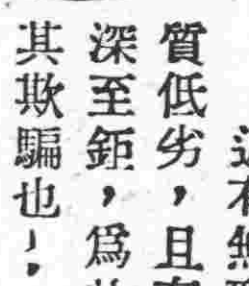 無
質低劣，且
深至鉅，為
其欺騙也！，